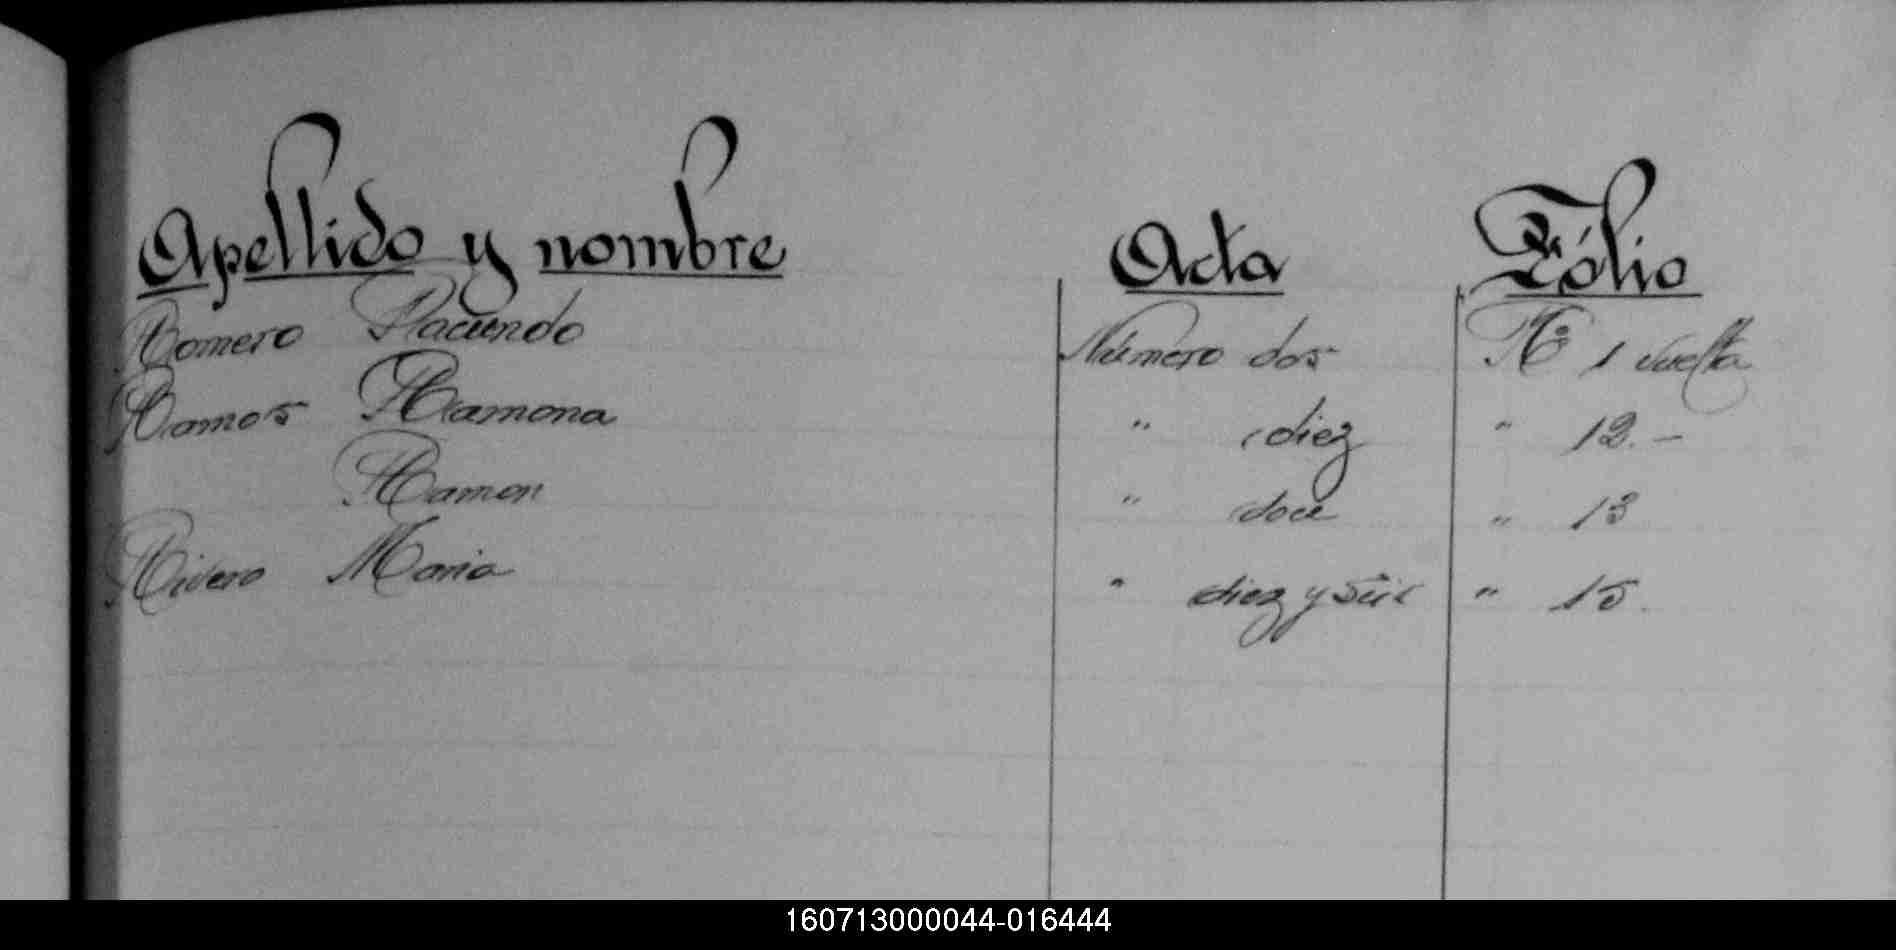 Apellido y nombre Acta Fólio
Romero Placiendo Número dos Nº 1 vuelta
Ramos Ramona " diez " 12.-
Ramon " doce " 13
Rivero Maria " diez y seis " 15.
160713000044-016444